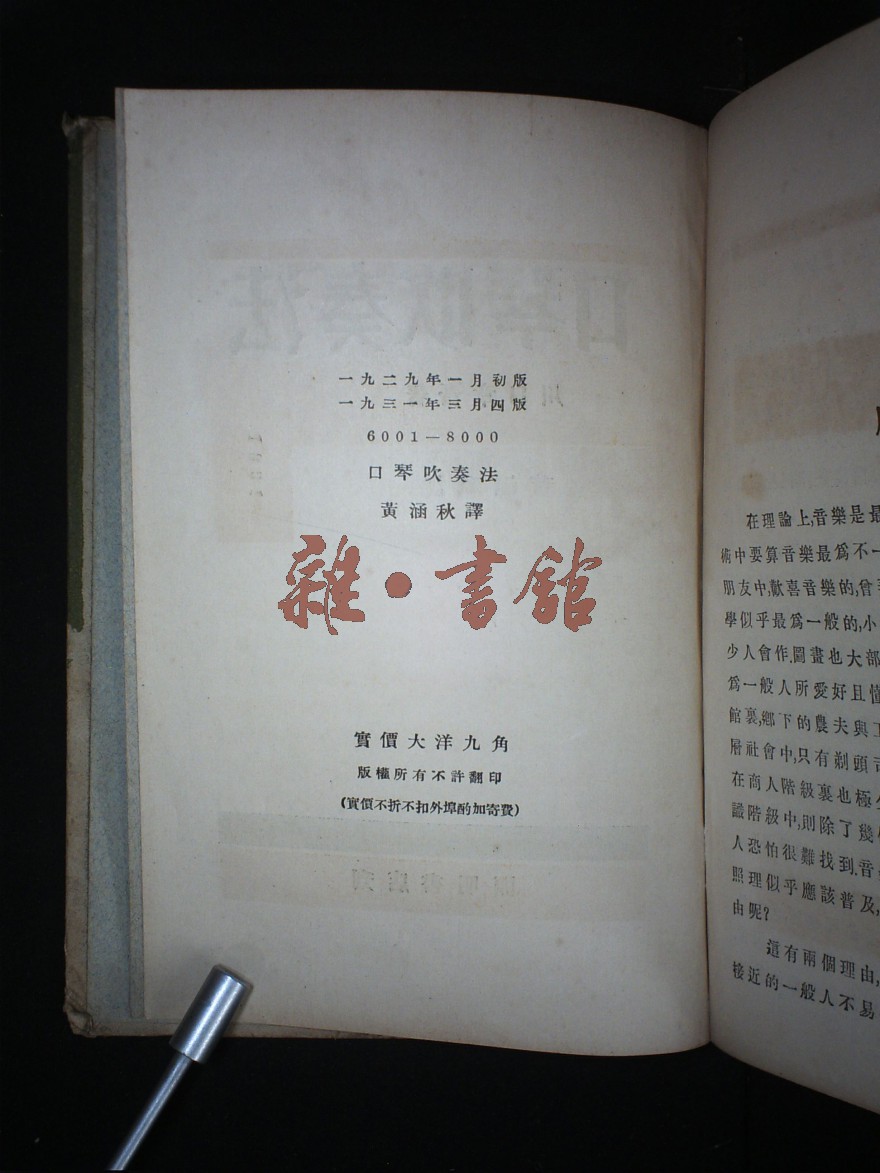 一九二九年一月初版
一九三一年三月四版
6001—8000
口琴吹奏法
黃涵秋譯
雜•書館
實價大洋九角
版權所有不許翻印
(實價不折不扣外埠酌加寄費)
在理論上,音樂是最
術中要算音樂最爲不一
朋友中,歡喜音樂的,曾
學似乎最爲一般的,小
少人會作.圖畫也大部
爲一般人所愛好且懂
館裏,鄉下的農夫與工
層社會中,只有剃頭司
在商人階級裏也極少
識階級中,則除了幾
人恐怕很難找到.音
照理似乎應該普及,
由呢?
這有兩個理由,
接近的一般人不易